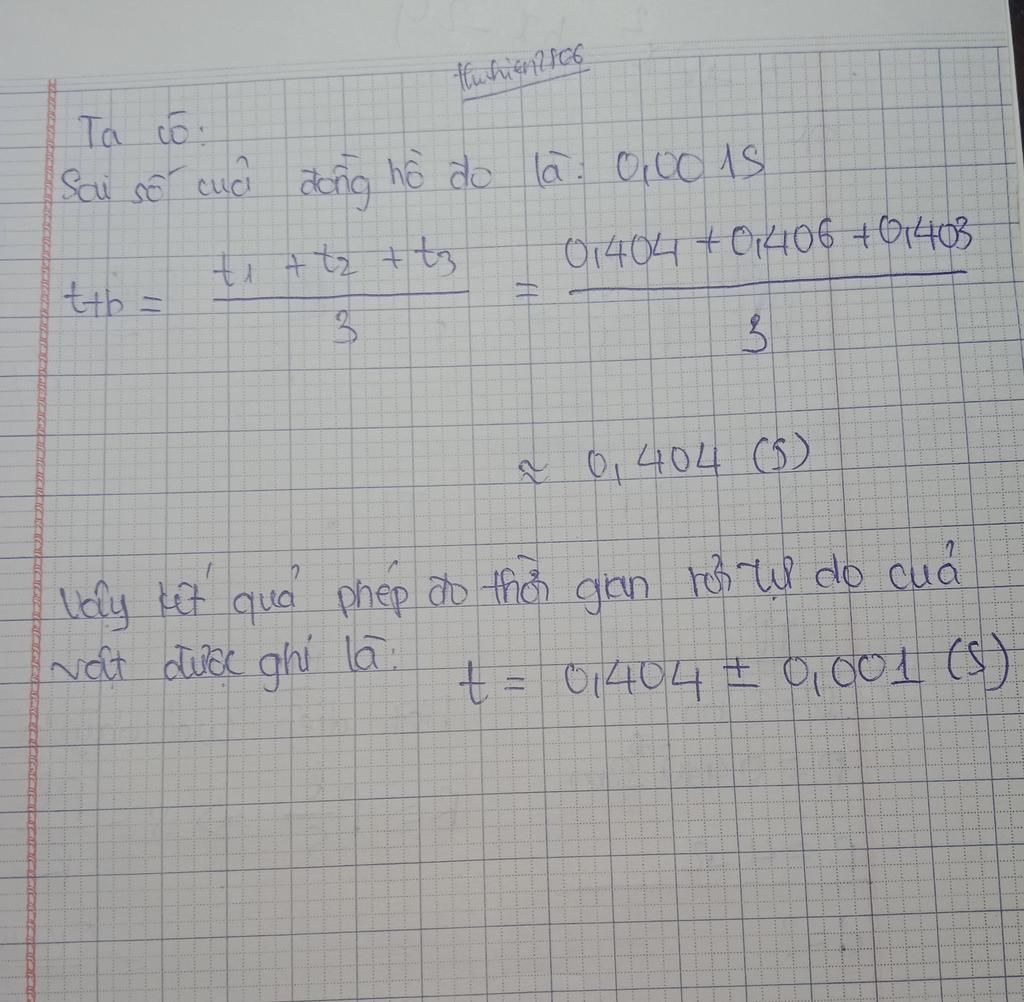 thuhien2806
Ta có:
Sai số cuả đồng hồ đo là: 0,001S
t+b = (t1 + t2 + t3) / 3 = (0,404 + 0,406 + 0,403) / 3
≈ 0,404 (S)
Vậy kết quả phép đo thời gian rơi tự do cuả
vật được ghi là: t = 0,404 ± 0,001 (S)